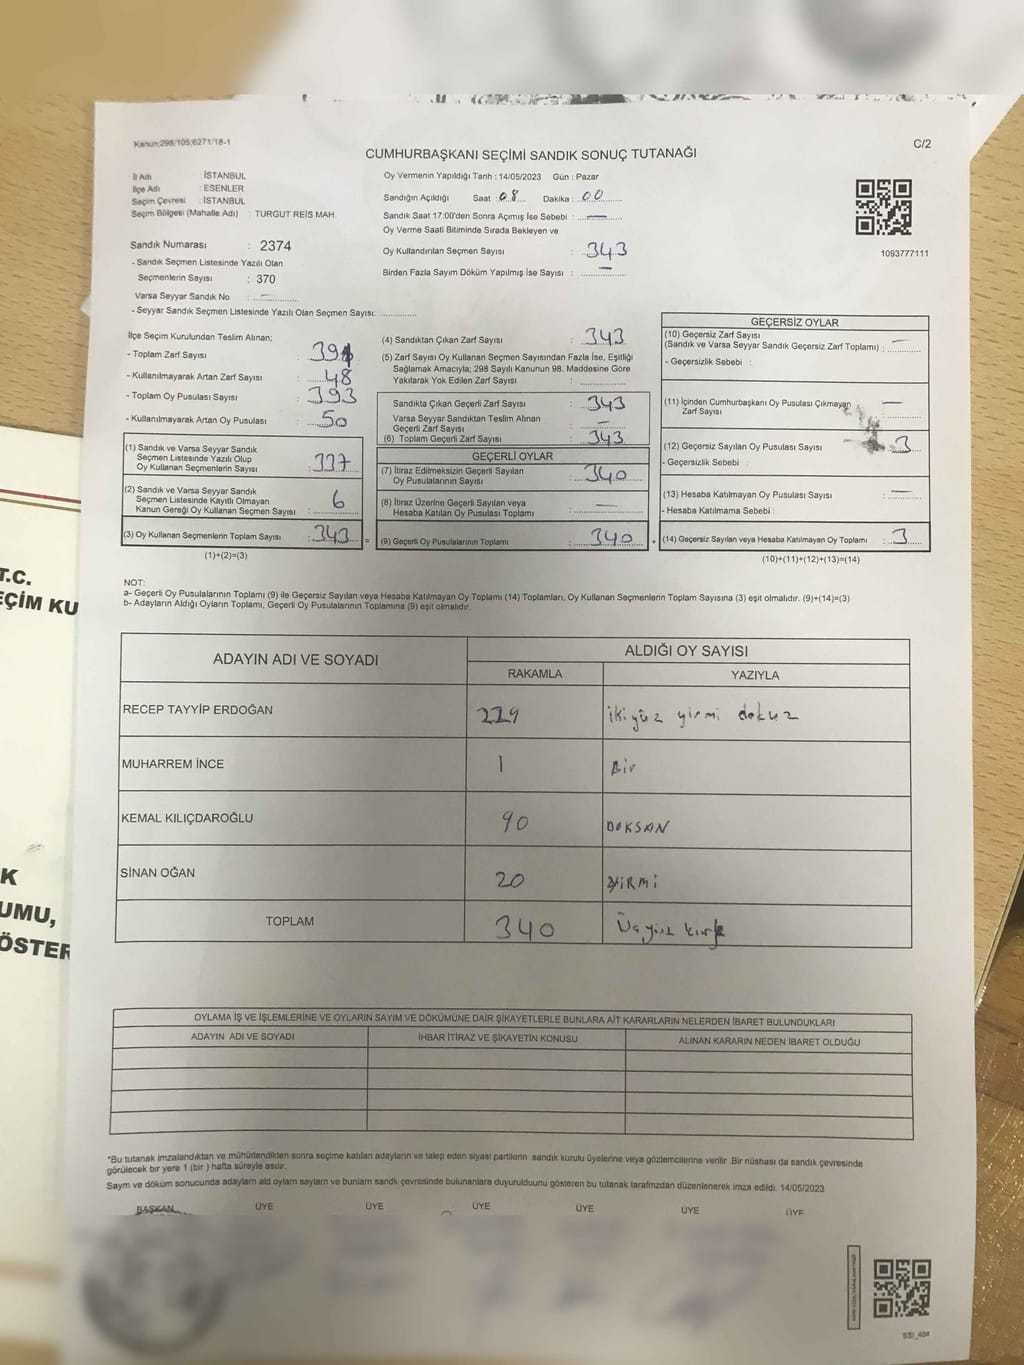 Kanun;298/105;6271/18-1
C/2
CUMHURBAŞKANI SEÇİMİ SANDIK SONUÇ TUTANAĞI
İl Adı : İSTANBUL
İlçe Adı : ESENLER
Seçim Çevresi : İSTANBUL
Seçim Bölgesi (Mahalle Adı) : TURGUT REİS MAH.
Sandık Numarası : 2374
- Sandık Seçmen Listesinde Yazılı Olan
Seçmenlerin Sayısı : 370
Varsa Seyyar Sandık No : —
- Seyyar Sandık Seçmen Listesinde Yazılı Olan Seçmen Sayısı:
Oy Vermenin Yapıldığı Tarih : 14/05/2023 Gün : Pazar
Sandığın Açıldığı Saat : 08 Dakika : 00
Sandık Saat 17:00'den Sonra Açımış İse Sebebi : —
Oy Verme Saati Bitiminde Sırada Bekleyen ve
Oy Kullandırılan Seçmen Sayısı : 343
Birden Fazla Sayım Döküm Yapılmış İse Sayısı : —
1093777111
İlçe Seçim Kurulundan Teslim Alınan;
- Toplam Zarf Sayısı :
- Kullanılmayarak Artan Zarf Sayısı : 48
- Toplam Oy Pusulası Sayısı : 393
- Kullanılmayarak Artan Oy Pusulası : 50
(1) Sandık ve Varsa Seyyar Sandık
Seçmen Listesinde Yazılı Olup
Oy Kullanan Seçmenlerin Sayısı : 337
(2) Sandık ve Varsa Seyyar Sandık
Seçmen Listesinde Kayıtlı Olmayan
Kanun Gereği Oy Kullanan Seçmen Sayısı : 6
(3) Oy Kullanan Seçmenlerin Toplam Sayısı : 343 =
(1)+(2)=(3)
(4) Sandıktan Çıkan Zarf Sayısı : 343
(5) Zarf Sayısı Oy Kullanan Seçmen Sayısından Fazla İse, Eşitliği
Sağlamak Amacıyla; 298 Sayılı Kanunun 98. Maddesine Göre
Yakılarak Yok Edilen Zarf Sayısı :
Sandıkta Çıkan Geçerli Zarf Sayısı : 343
Varsa Seyyar Sandıktan Teslim Alınan
Geçerli Zarf Sayısı : —
(6) Toplam Geçerli Zarf Sayısı : 343
GEÇERLİ OYLAR
(7) İtiraz Edilmeksizin Geçerli Sayılan
Oy Pusulalarının Sayısı : 340
(8) İtiraz Üzerine Geçerli Sayılan veya
Hesaba Katılan Oy Pusulası Toplamı : —
(9) Geçerli Oy Pusulalarının Toplamı : 340 +
GEÇERSİZ OYLAR
(10) Geçersiz Zarf Sayısı
(Sandık ve Varsa Seyyar Sandık Geçersiz Zarf Toplamı) : —
- Geçersizlik Sebebi :
(11) İçinden Cumhurbaşkanı Oy Pusulası Çıkmayan
Zarf Sayısı : —
(12) Geçersiz Sayılan Oy Pusulası Sayısı : 3
- Geçersizlik Sebebi :
(13) Hesaba Katılmayan Oy Pusulası Sayısı : —
- Hesaba Katılmama Sebebi :
(14) Geçersiz Sayılan veya Hesaba Katılmayan Oy Toplamı : 3
(10)+(11)+(12)+(13)=(14)
NOT:
a- Geçerli Oy Pusulalarının Toplamı (9) ile Geçersiz Sayılan veya Hesaba Katılmayan Oy Toplamı (14) Toplamları, Oy Kullanan Seçmenlerin Toplam Sayısına (3) eşit olmalıdır. (9)+(14)=(3)
b- Adayların Aldığı Oyların Toplamı, Geçerli Oy Pusulalarının Toplamına (9) eşit olmalıdır.
ADAYIN ADI VE SOYADI ALDIĞI OY SAYISI
RAKAMLA YAZIYLA
RECEP TAYYİP ERDOĞAN 229 ikiyüz yirmi dokuz
MUHARREM İNCE 1 Bir
KEMAL KILIÇDAROĞLU 90 DOKSAN
SİNAN OĞAN 20 YİRMİ
TOPLAM 340 Üçyüz kırk
OYLAMA İŞ VE İŞLEMLERİNE VE OYLARIN SAYIM VE DÖKÜMÜNE DAİR ŞİKAYETLERLE BUNLARA AİT KARARLARIN NELERDEN İBARET BULUNDUKLARI
ADAYIN ADI VE SOYADI İHBAR İTİRAZ VE ŞİKAYETİN KONUSU ALINAN KARARIN NEDEN İBARET OLDUĞU
*Bu tutanak imzalandıktan ve mühürlendikten sonra seçime katılan adayların ve talep eden siyasi partilerin sandık kurulu üyelerine veya gözlemcilerine verilir .Bir nüshası da sandık çevresinde
görülecek bir yere 1 (bir ) hafta süreyle asılır.
Sayım ve döküm sonucunda adayların ald oyların sayların ve bunların sandk çevresinde bulunanlara duyurulduunu gösteren bu tutanak tarafımzdan düzenlenerek imza edildi. 14/05/2023
BAŞKAN ÜYE ÜYE ÜYE ÜYE ÜYE ÜYE
T.C.
EÇİM KU
K
UMU,
ÖSTER